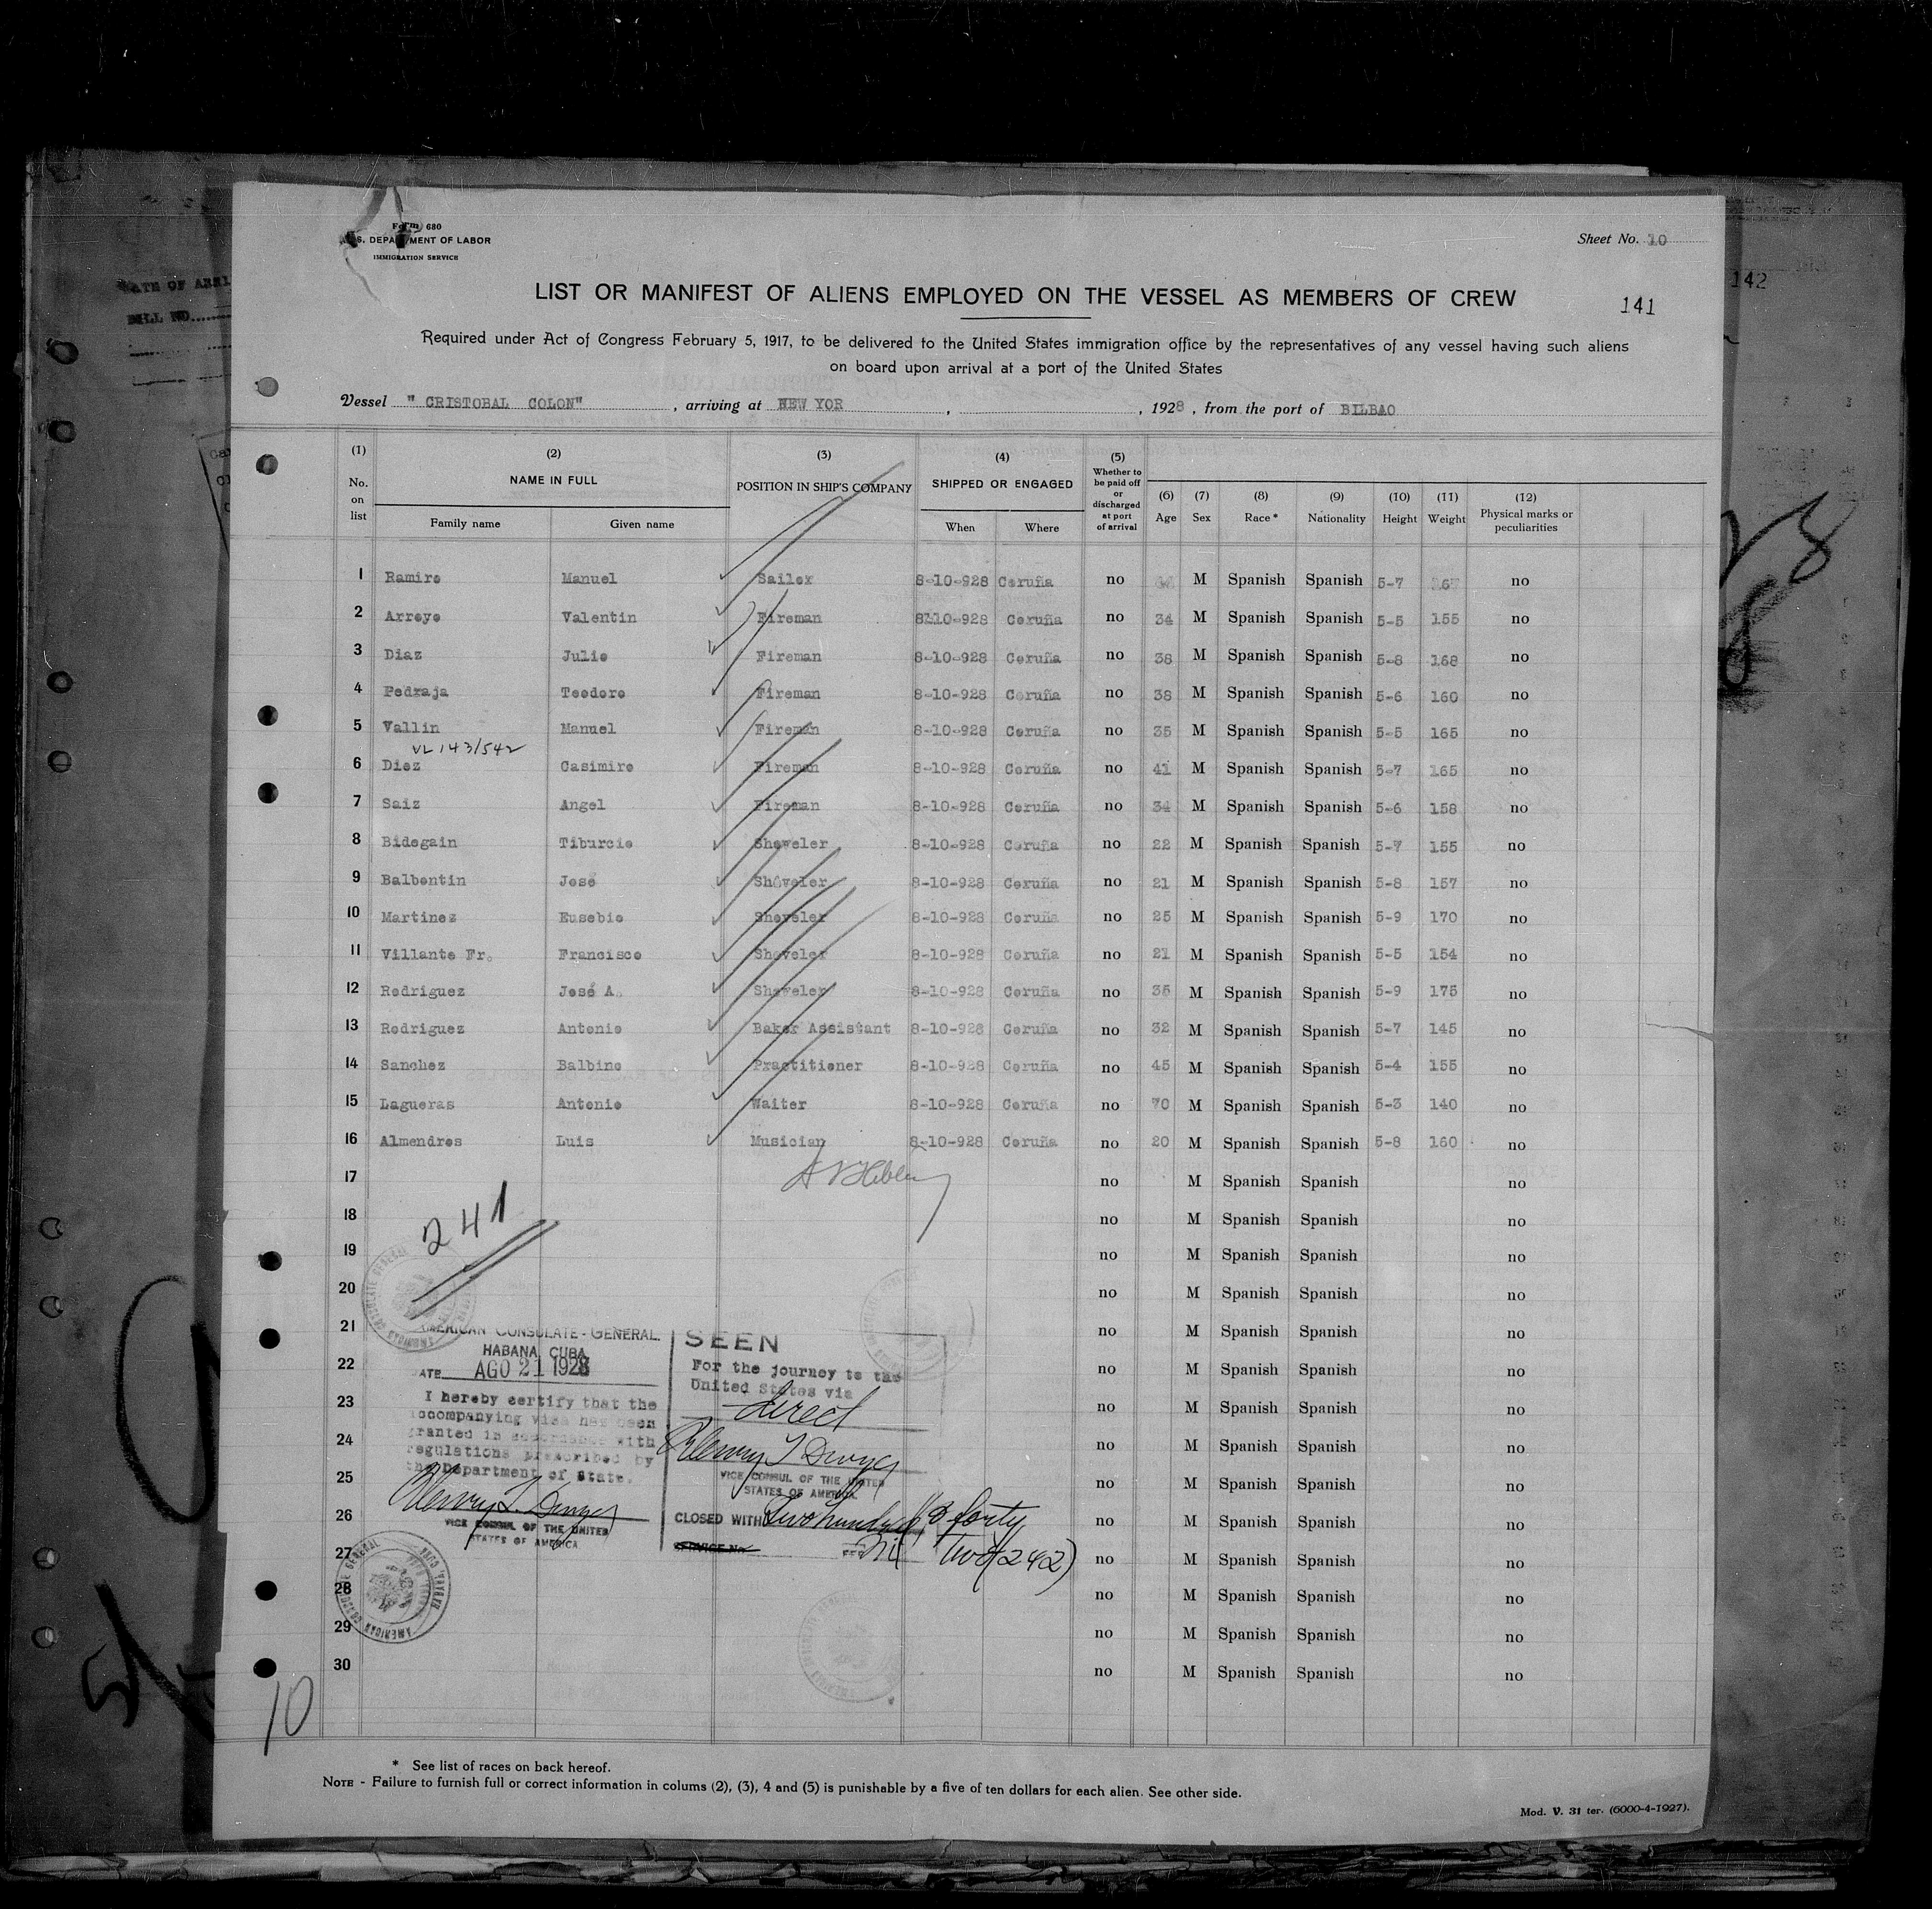 Form 680
U.S. DEPARTMENT OF LABOR
IMMIGRATION SERVICE
Sheet No. 10
LIST OR MANIFEST OF ALIENS EMPLOYED ON THE VESSEL AS MEMBERS OF CREW
141
142
Required under Act of Congress February 5, 1917, to be delivered to the United States immigration office by the representatives of any vessel having such aliens
on board upon arrival at a port of the United States
Vessel " CRISTOBAL COLON" , arriving at NEW YOR , , 1928 , from the port of BILBAO
(1) No. on list (2) NAME IN FULL Family name Given name (3) POSITION IN SHIP'S COMPANY (4) SHIPPED OR ENGAGED When Where (5) Whether to be paid off or discharged at port of arrival (6) Age (7) Sex (8) Race * (9) Nationality (10) Height (11) Weight (12) Physical marks or peculiarities
1 Ramiro Manuel Sailor 8-10-928 Coruña no M Spanish Spanish 5-7 no
2 Arroyo Valentin Fireman 8-10-928 Coruña no 34 M Spanish Spanish 5-5 155 no
3 Diaz Julio Fireman 8-10-928 Coruña no 38 M Spanish Spanish 5-8 168 no
4 Pedraja Teodoro Fireman 8-10-928 Coruña no 38 M Spanish Spanish 5-6 160 no
5 Vallin Manuel Fireman 8-10-928 Coruña no 35 M Spanish Spanish 5-5 165 no
VL 143/542
6 Diez Casimiro Fireman 8-10-928 Coruña no 41 M Spanish Spanish 5-7 165 no
7 Saiz Angel Fireman 8-10-928 Coruña no 34 M Spanish Spanish 5-6 158 no
8 Bidegain Tiburcio Shoveler 8-10-928 Coruña no 22 M Spanish Spanish 5-7 155 no
9 Balbontin José Shoveler 8-10-928 Coruña no 21 M Spanish Spanish 5-8 157 no
10 Martinez Eusebio Shoveler 8-10-928 Coruña no 25 M Spanish Spanish 5-9 170 no
11 Villante Fr. Francisco Shoveler 8-10-928 Coruña no 21 M Spanish Spanish 5-5 154 no
12 Rodriguez José A. Shoveler 8-10-928 Coruña no 35 M Spanish Spanish 5-9 175 no
13 Rodriguez Antonio Baker Assistant 8-10-928 Coruña no 32 M Spanish Spanish 5-7 145 no
14 Sanchez Balbino Practitioner 8-10-928 Coruña no 45 M Spanish Spanish 5-4 155 no
15 Lagueras Antonio Waiter 8-10-928 Coruña no 70 M Spanish Spanish 5-3 140 no
16 Almendros Luis Musician 8-10-928 Coruña no 20 M Spanish Spanish 5-8 160 no
17 no M Spanish Spanish no
18 no M Spanish Spanish no
19 no M Spanish Spanish no
20 no M Spanish Spanish no
21 no M Spanish Spanish no
22 no M Spanish Spanish no
23 no M Spanish Spanish no
24 no M Spanish Spanish no
25 no M Spanish Spanish no
26 no M Spanish Spanish no
27 no M Spanish Spanish no
28 no M Spanish Spanish no
29 no M Spanish Spanish no
30 no M Spanish Spanish no
241
AMERICAN CONSULATE-GENERAL.
HABANA, CUBA
DATE AGO 21 1928
I hereby certify that the
accompanying visa has been
granted in accordance with
regulations prescribed by
the Department of State.
VICE CONSUL OF THE UNITED
STATES OF AMERICA
SEEN
For the journey to the
United States via
direct
VICE CONSUL OF THE UNITED
STATES OF AMERICA
CLOSED WITH Two hundred & forty
two (242)
SERVICE No. FEE Nil
AMERICAN CONSULATE GENERAL HABANA, CUBA
10
* See list of races on back hereof.
NOTE - Failure to furnish full or correct information in colums (2), (3), 4 and (5) is punishable by a five of ten dollars for each alien. See other side.
Mod. V. 31 ter. (6000-4-1927).